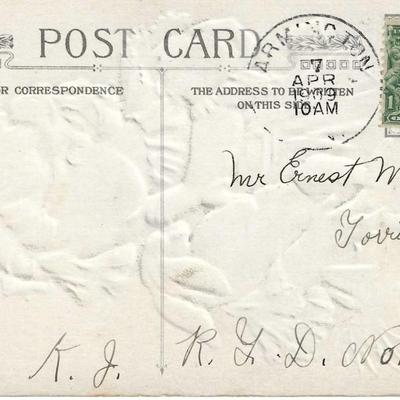 POST CARD
OR CORRESPONDENCE
THE ADDRESS TO BE WRITTEN
ON THIS SIDE
ARMINGTON
7
APR
1909
10AM
1
Mr Ernest W
Torri
K. J.
R. F. D. No